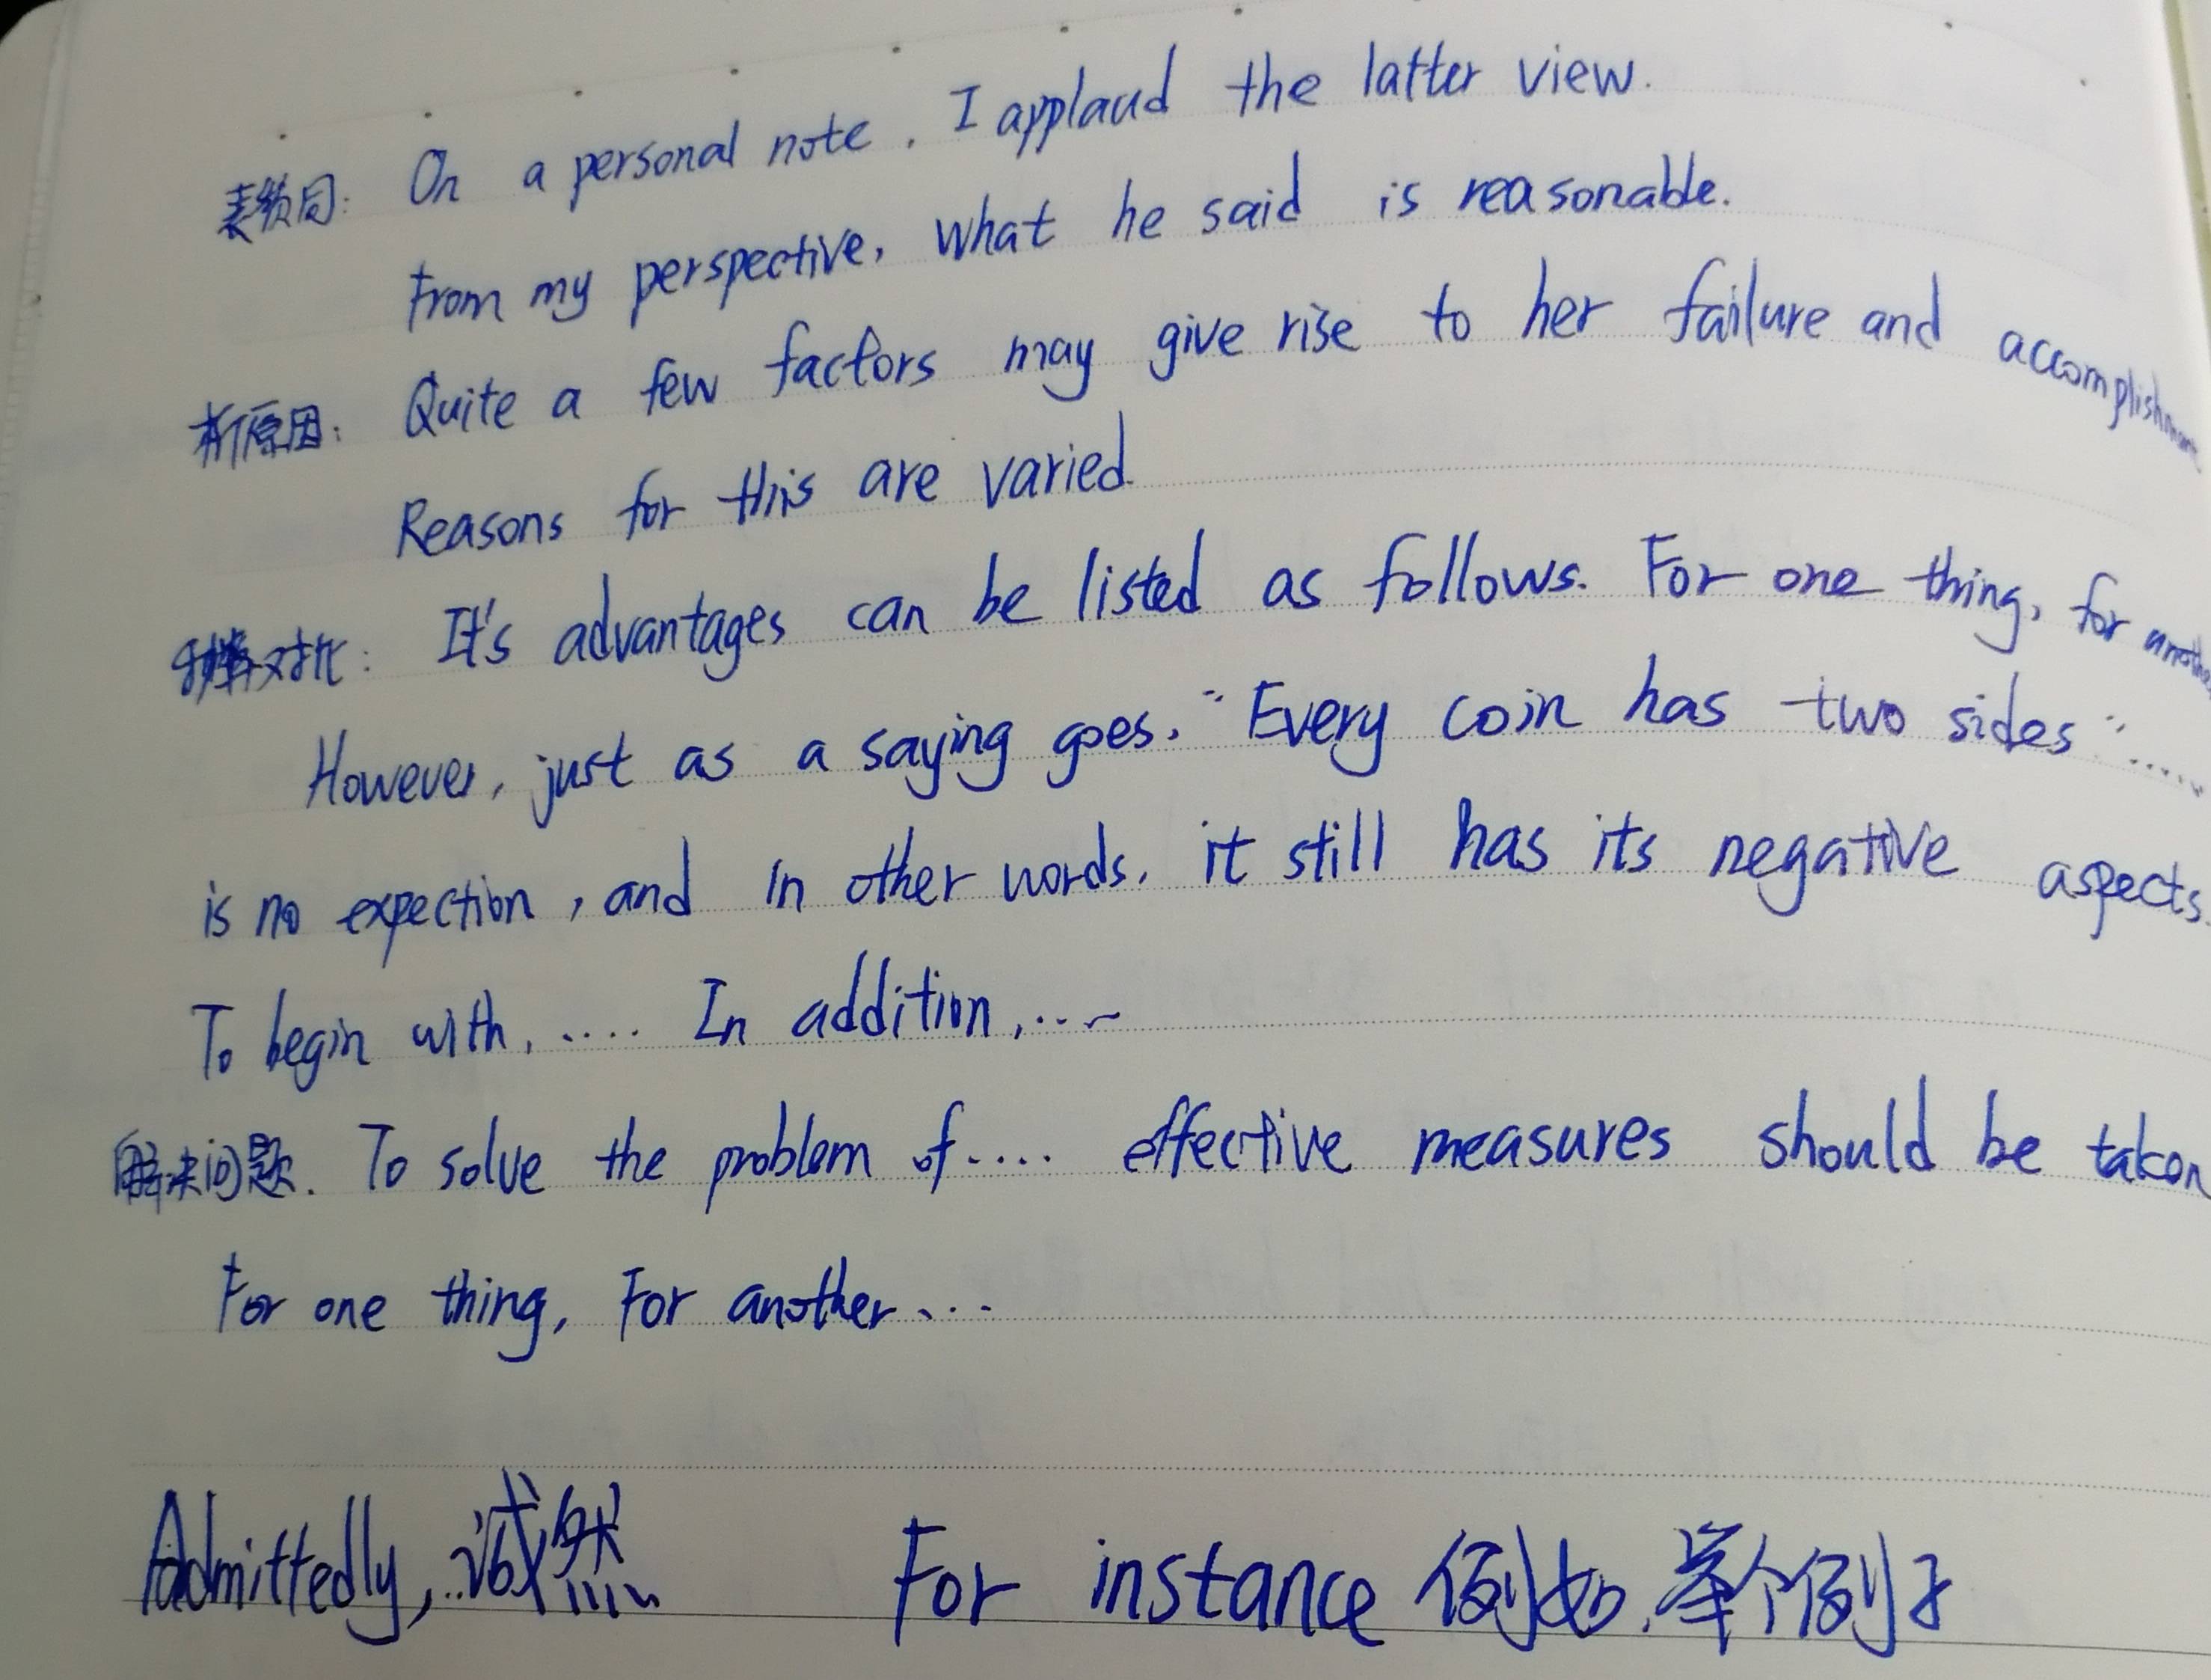 On a personal note, I applaud the latter view.
From my perspective, what he said is reasonable.
析原因: Quite a few factors may give rise to her failure and accomplishment
Reasons for this are varied.
对比: It's advantages can be listed as follows. For one thing, for another
However, just as a saying goes, "Every coin has two sides" ......
is no expection, and in other words, it still has its negative aspects.
To begin with, .... In addition, ...
解决问题. To solve the problem of .... effective measures should be taken
For one thing, For another ...
Admittedly, 诚然 For instance 例如, 举个例子